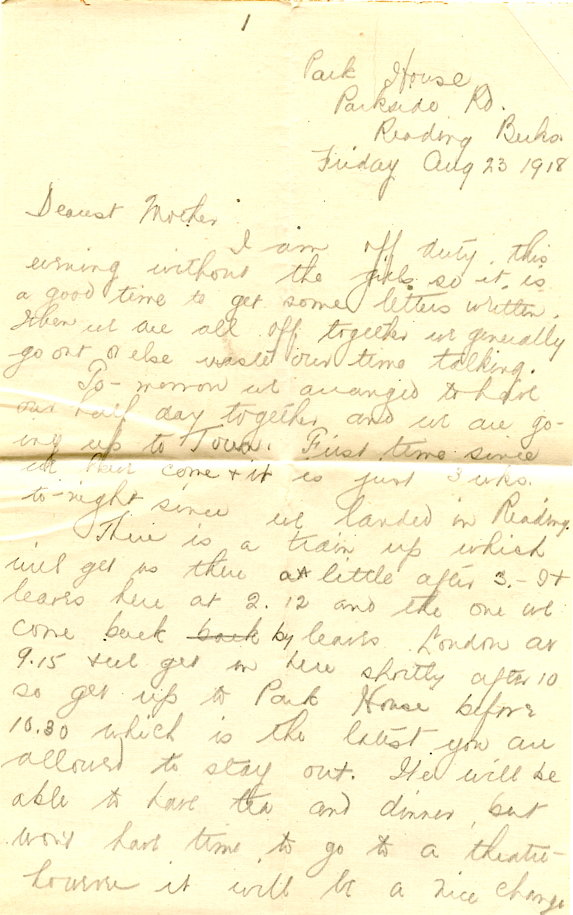 1
Park House
Parkside Rd.
Reading Berks.
Friday Aug 23 1918
Dearest Mother
I am off duty this
evening without the girls so it is
a good time to get some letters written.
When we are all off together we generally
go out or else waste our time talking.
To-morrow we arranged to have
our half day together and we are go-
ing up to Town. First time since
we have come & it is just 3 wks.
to-night since we landed in Reading.
There is a train up which
will get us there at little after 3. - It
leaves here at 2.12 and the one we
come back back by leaves London at
9.15 & will get in here shortly after 10
so get up to Park House before
10.30 which is the latest you are
allowed to stay out. We will be
able to have tea and dinner, but
won't have time to go to a theatre-
however it will be a nice change